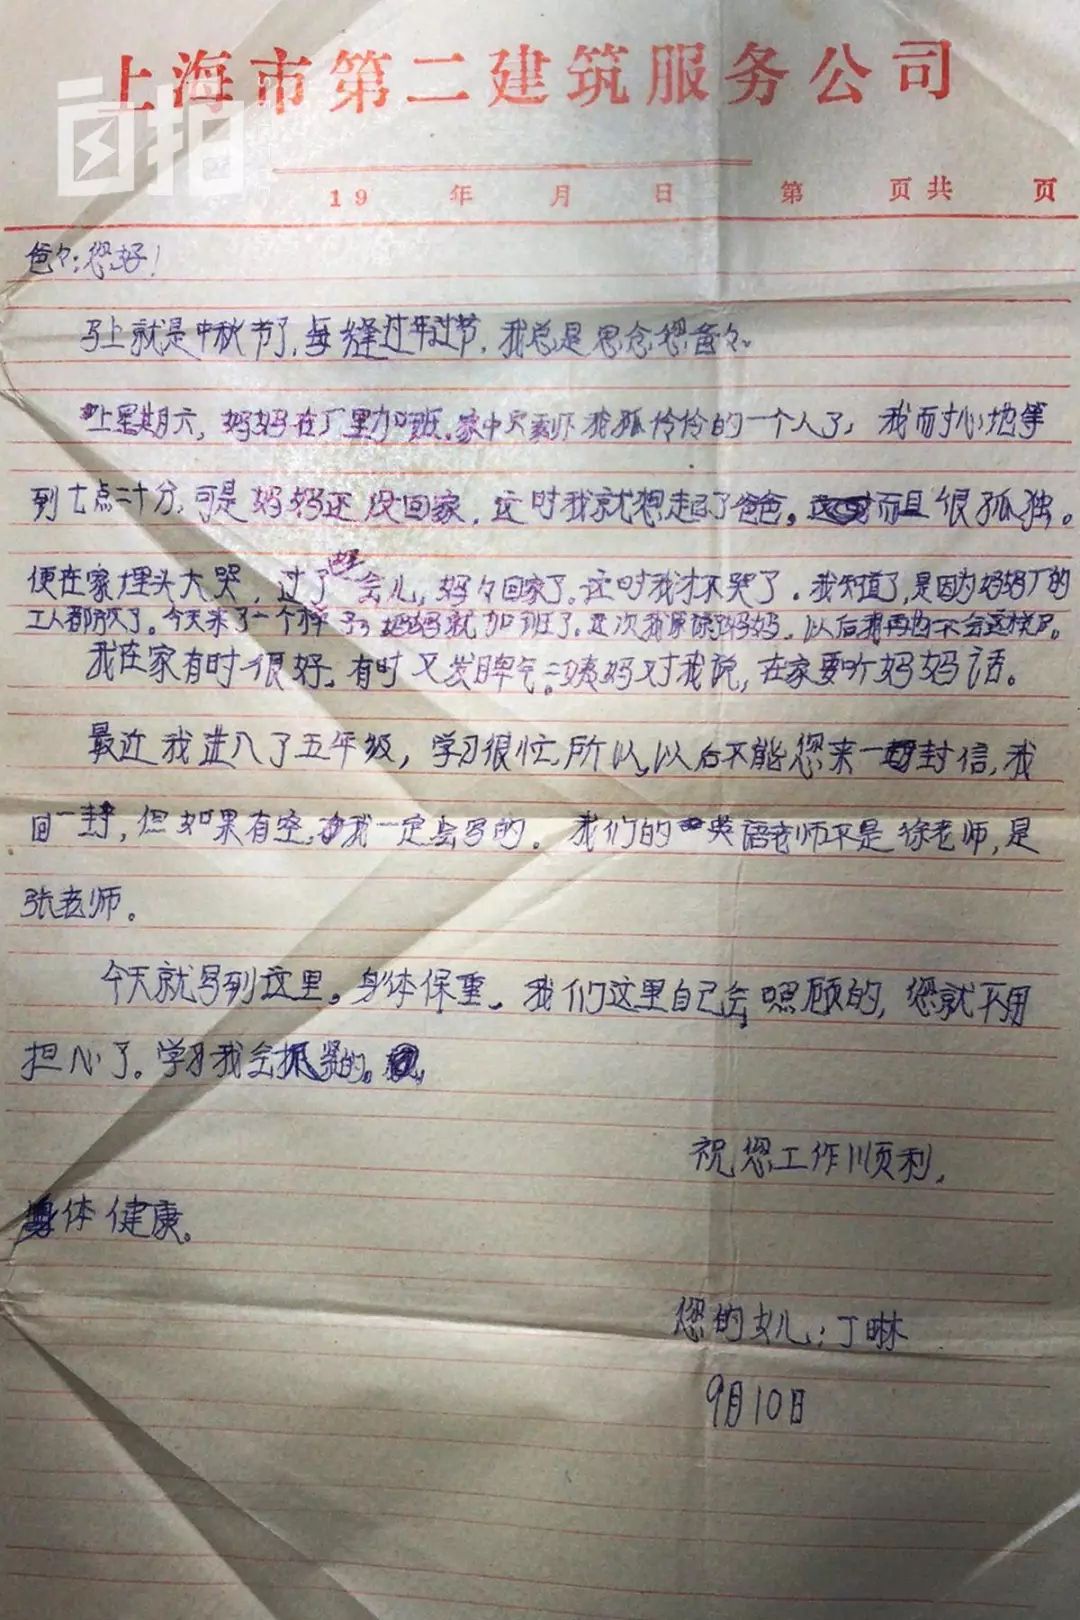 上海市第二建筑服务公司
自拍
19 年 月 日 第 页共 页
爸々：您好！
马上就是中秋节了，每缝过年过节，我总是思念您爸々。
上星期六，妈妈在厂里加班。家中只剩下我孤伶伶的一个人了，我耐心地等
到七点二十分，可是妈妈还没回家，这时我就想起了爸爸。而且很孤独。
便在家埋头大哭，过了一会儿，妈々回家了。这时我才不哭了。我知道了，是因为妈妈厂的
工人都放了。今天来了一个 妈妈就加班了。这次我 妈妈，以后我再也不会这样了。
我在家有时很好，有时又发脾气。二姨妈对我说，在家要听妈妈话。
最近我进入了五年级，学习很忙，所以，以后不能您来一封信，我
回一封，但如果有空，我一定会写的。我们的英语老师不是徐老师，是
张老师。
今天就写到这里。身体保重。我们这里自己会照顾的，您就不用
担心了。学习我会抓紧的。
祝您工作顺利，
身体健康。
您的女儿：丁琳
9月10日